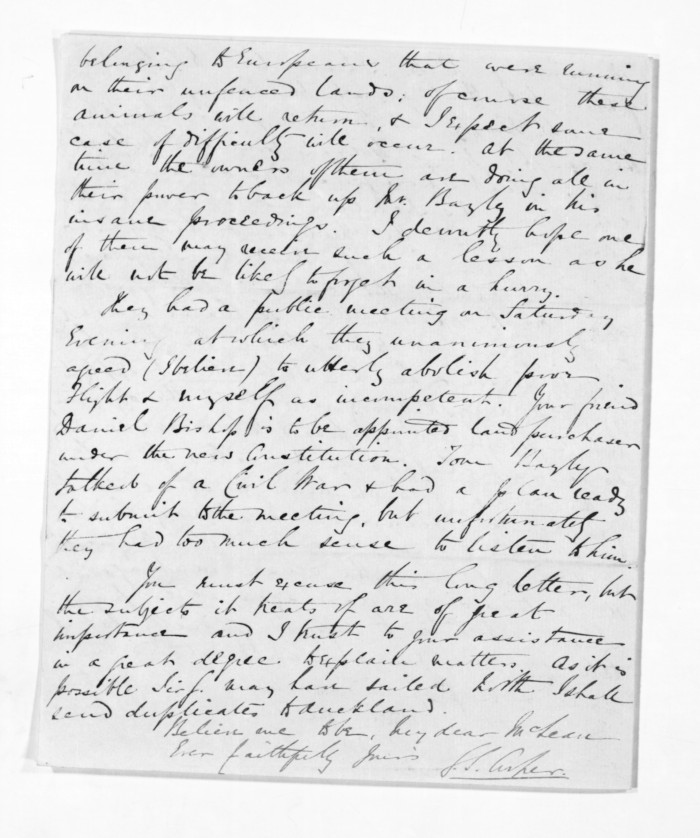 belonging to Europeans that were running
on their unfenced lands; of course these
animals will return, & I expect some
case of difficulty will occur. At the same
time the owners of them are doing all in
their power to back up Mr. Bayly in his
insane proceedings. I devoutly hope one
of them may receive such a lesson as he
will not be likely to forget in a hurry.
They had a public meeting on Saturday
Evening at which they unanimously
agreed (I believe) to utterly abolish poor
Flight & myself as incompetent. Your friend
Daniel Bishop is to be appointed land purchaser
under the new Constitution. Tom Bayly
talked of a Civil War & had a plan ready
to submit to the meeting, but unfortunately
they had too much sense to listen to him.
You must excuse this long letter, but
the subjects it treats of are of great
importance and I trust to your assistance
in a great degree to explain matters. As it is
possible Sir G. may have sailed North I shall
send duplicates to Auckland.
Believe me to be, My dear McLean
Ever faithfully yours